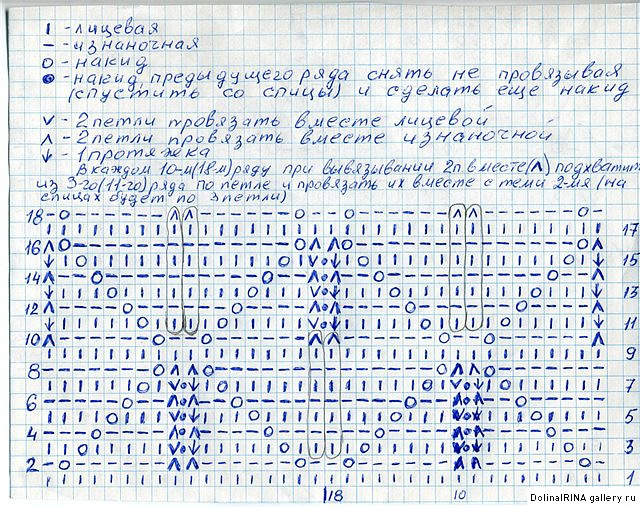 I - лицевая
− - изнаночная
O - накид
- накид предыдущего ряда снять не провязывая
(спустить со спицы) и сделать еще накид
V - 2 петли провязать вместе лицевой
Λ - 2 петли провязать вместе изнаночной
↓ - 1 протяжка
В каждом 10-м(18м) ряду при вывязывании 2п вместе(Λ) подхватит
из 3-го(11-го) ряда по петле и провязать их вместе с теми 2-мя (на
спицах будет по 3 петли)
18
17
16
15
14
13
12
11
10
9
8
7
6
5
4
3
2
1
18 10
DolinaIRINA gallery.ru